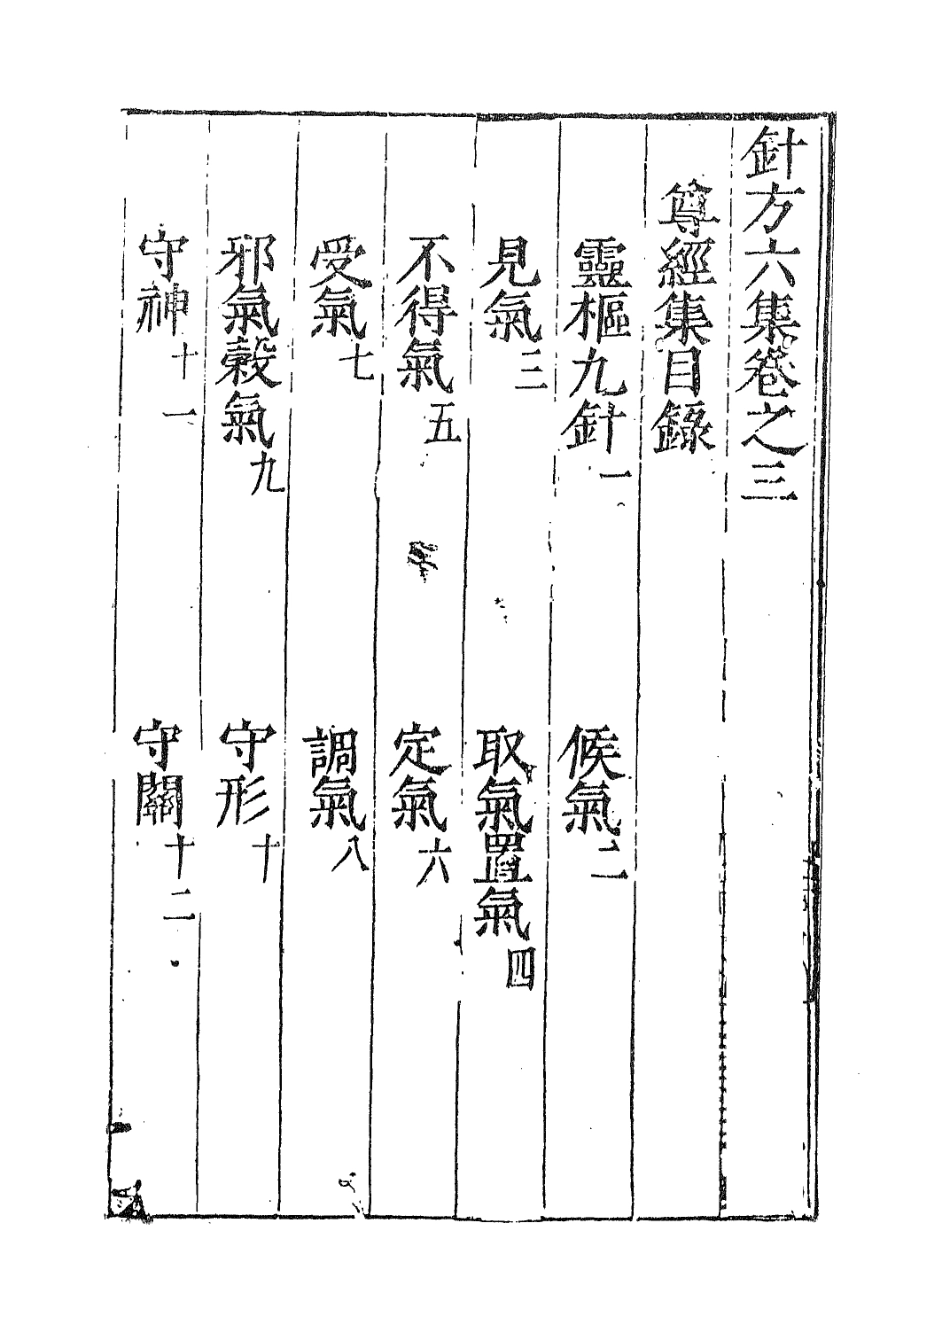 針方六集卷之三
尊經集目錄
靈樞九針一 候氣二
見氣三 取氣置氣四
不得氣五 定氣六
受氣七 調氣八
邪氣穀氣九 守形十
守神十一 守關十二